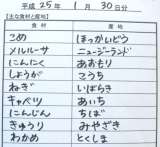 平成 25年 1月 30日分
【主な食材と産地】
食材 産地
こめ ほっかいどう
メルルーサ ニュージーランド
にんにく あおもり
しょうが こうち
ねぎ いばらき
キャベツ あいち
にんじん ちば
きゅうり みやざき
わかめ とくしま